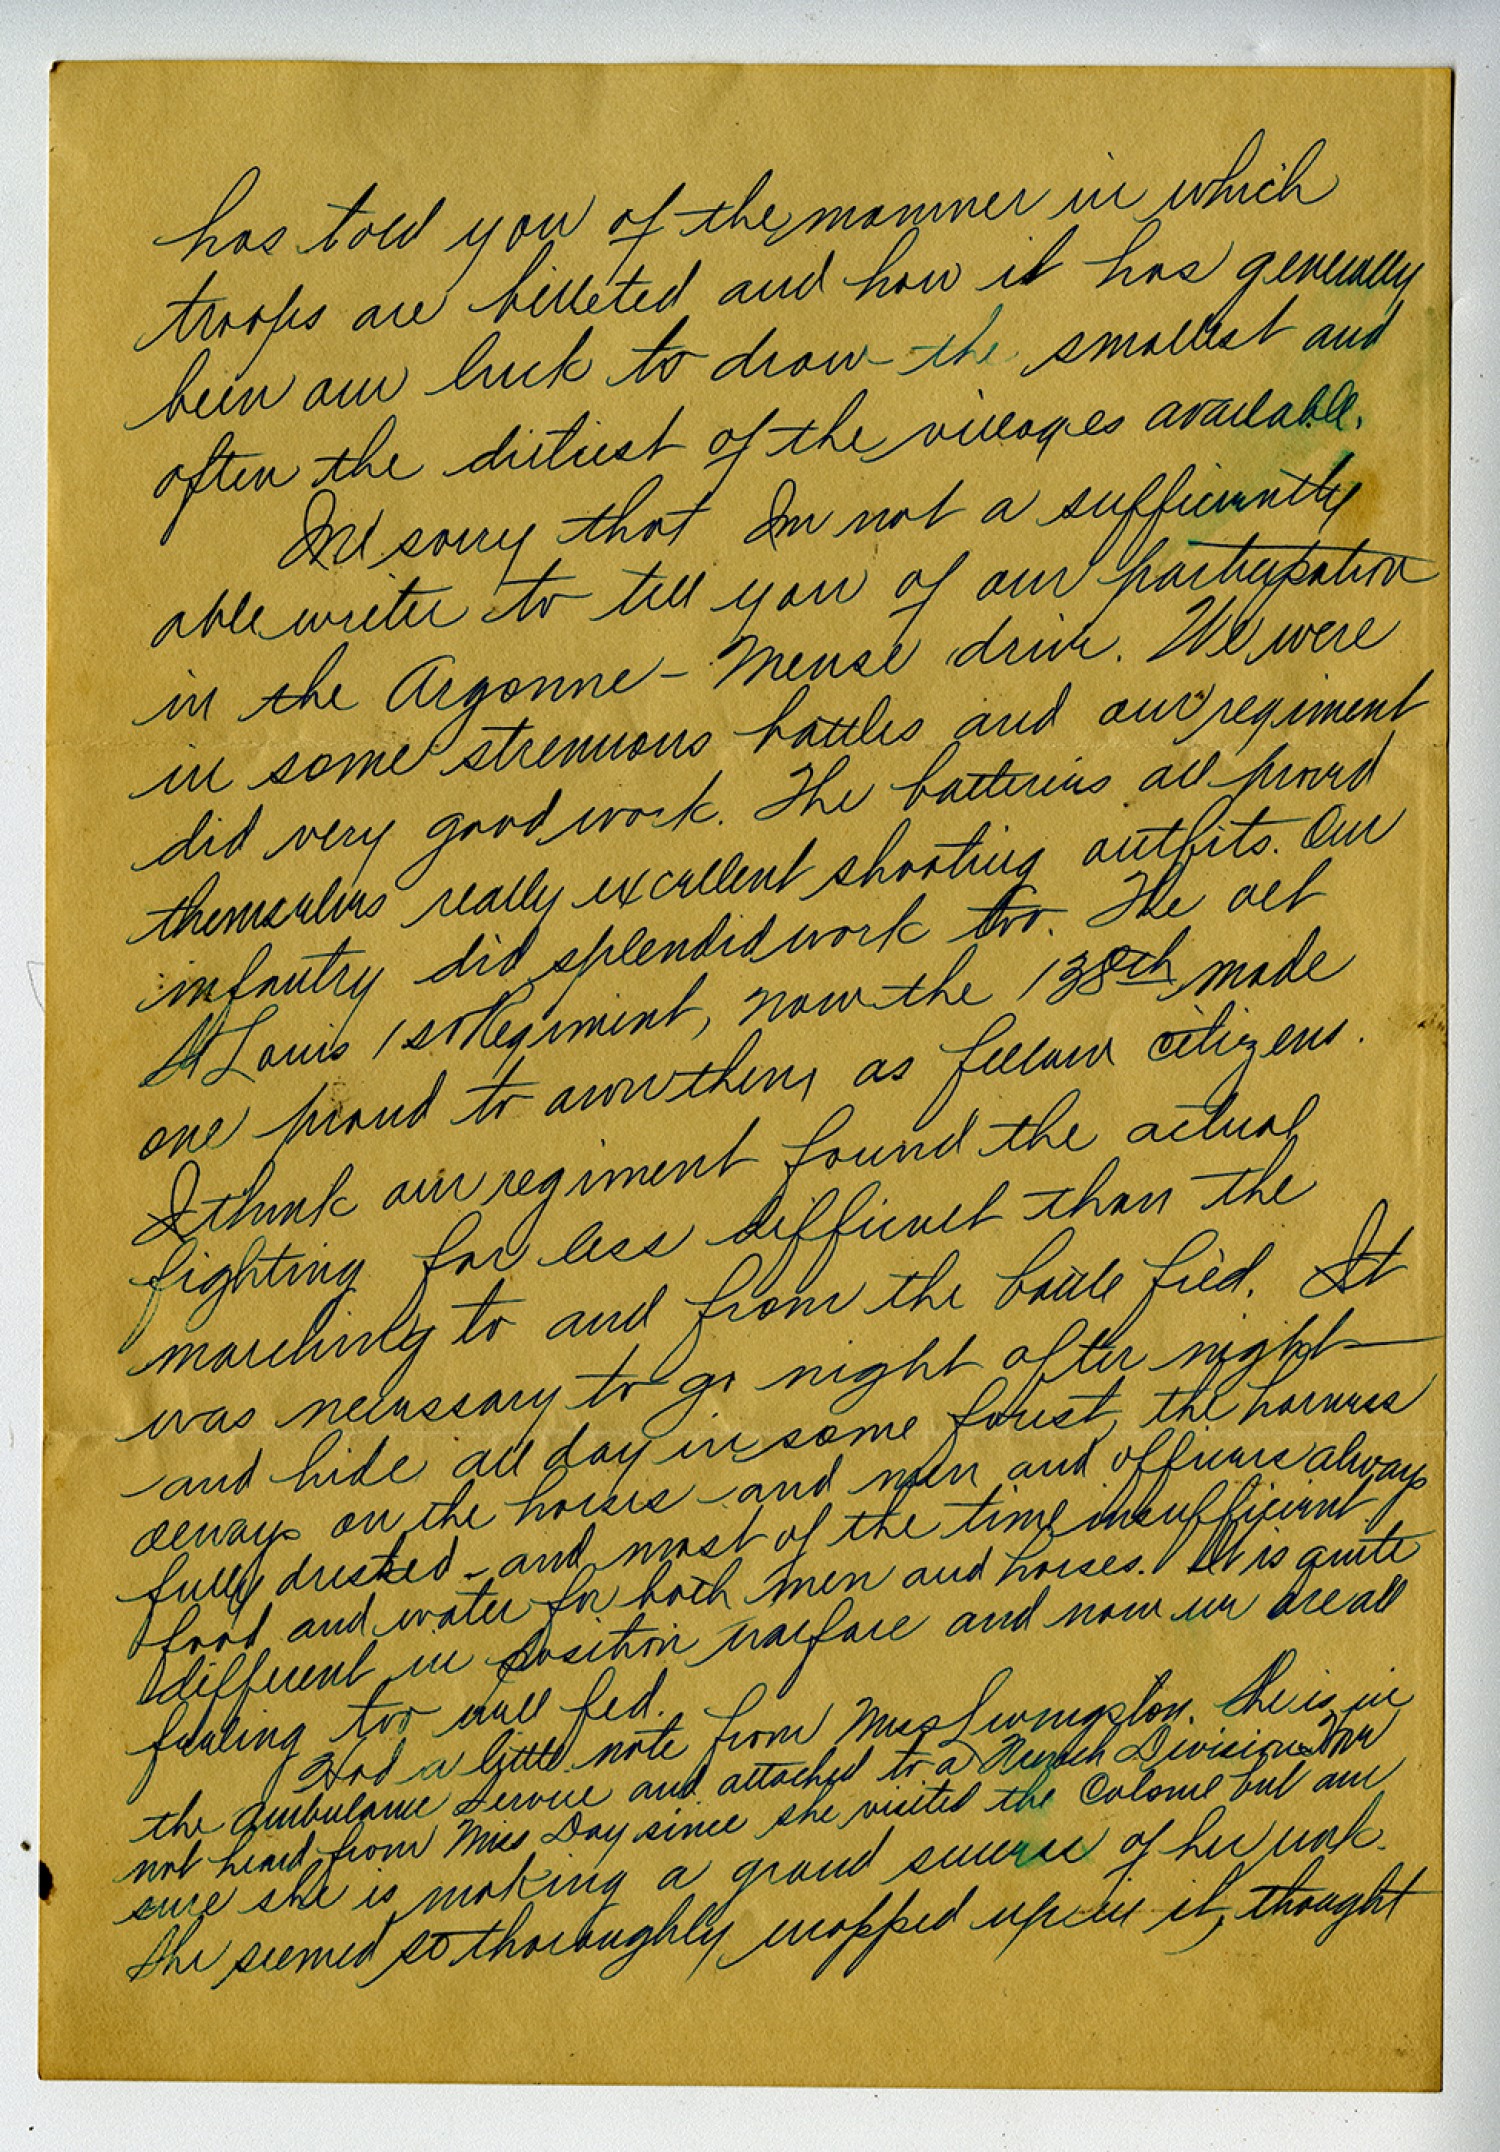 has told you of the manner in which
troops are billeted and how it has generally
been our luck to draw the smallest and
often the dirtiest of the villages available.
I'm sorry that I'm not a sufficiently
able writer to tell you of our participation
in the Argonne - Meuse drive. We were
in some strenuous battles and our regiment
did very good work. The batteries all proved
themselves really excellent shooting outfits. Our
infantry did splendid work too. The old
St Louis 1st Regiment, now the 138th made
one proud to own them as fellow citizens.
I think our regiment found the actual
fighting far less difficult than the
marching to and from the battle field. It
was necessary to go night after night
and hide all day in some forest, the harness
always on the horses - and men and officers always
fully dressed - and most of the time insufficient
food and water for both men and horses. It is quite
different in position warfare and now we are all
feeling too well fed.
Had a little note from Miss Livingston. She is in
the ambulance service and attached to a French Division. I've
not heard from Miss Day since she visited the Colonel but am
sure she is making a grand success of her work.
She seemed so thoroughly wrapped up in it, thought